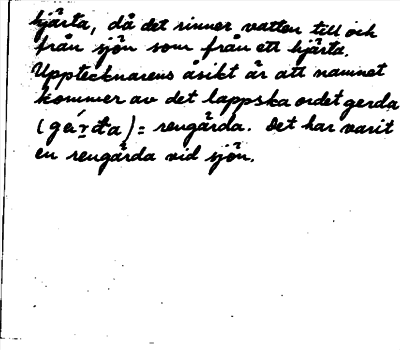 hjärta, då det rinner vatten till och
från sjön som från ett hjärta.
Upptecknarens åsikt är att namnet
kommer av det lappska ordet gerda
(gáṛda) = rengärda. Det har varit
en rengärda vid sjön.